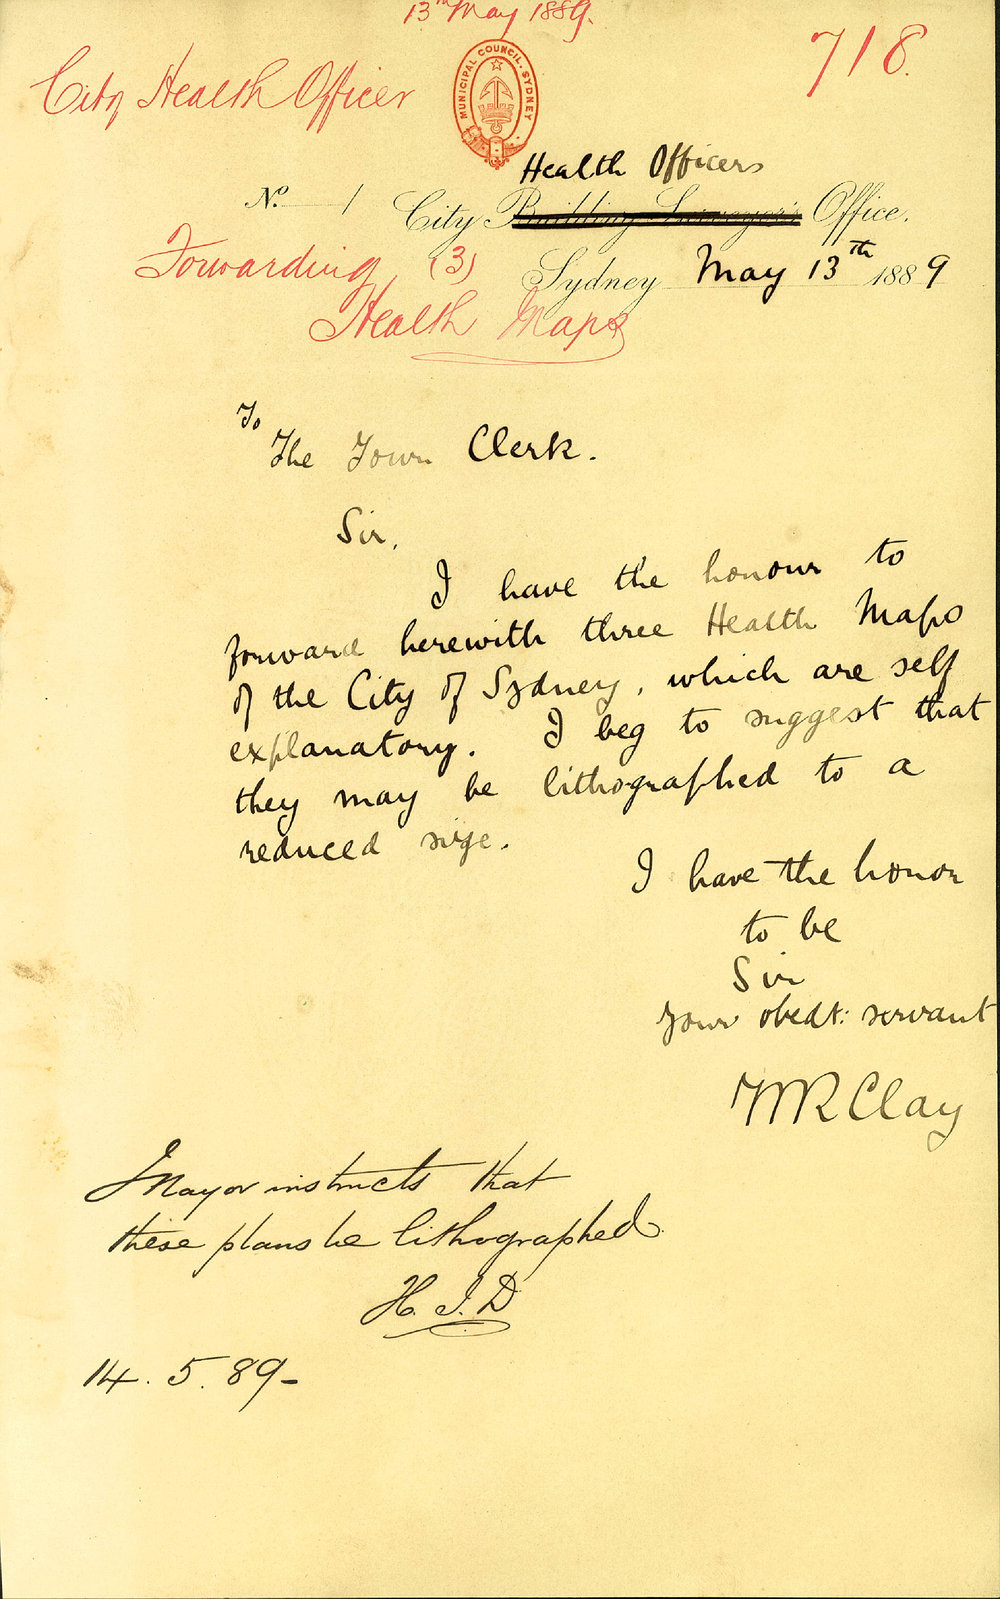 13th May 1889.
718.
City Health Officer
MUNICIPAL COUNCIL. SYDNEY
Health Officers
No. 1 City Building Surveyor's Office.
Forwarding (3)
Sydney May 13th 1889
Health Maps
To
The Town Clerk.
Sir,
I have the honour to
forward herewith three Health Maps
of the City of Sydney, which are self
explanatory. I beg to suggest that
they may be lithographed to a
reduced size.
I have the honor
to be
Sir
Your obedt: servant
WRClay
Mayor instructs that
these plans be lithographed
H. J. D
14. 5. 89-